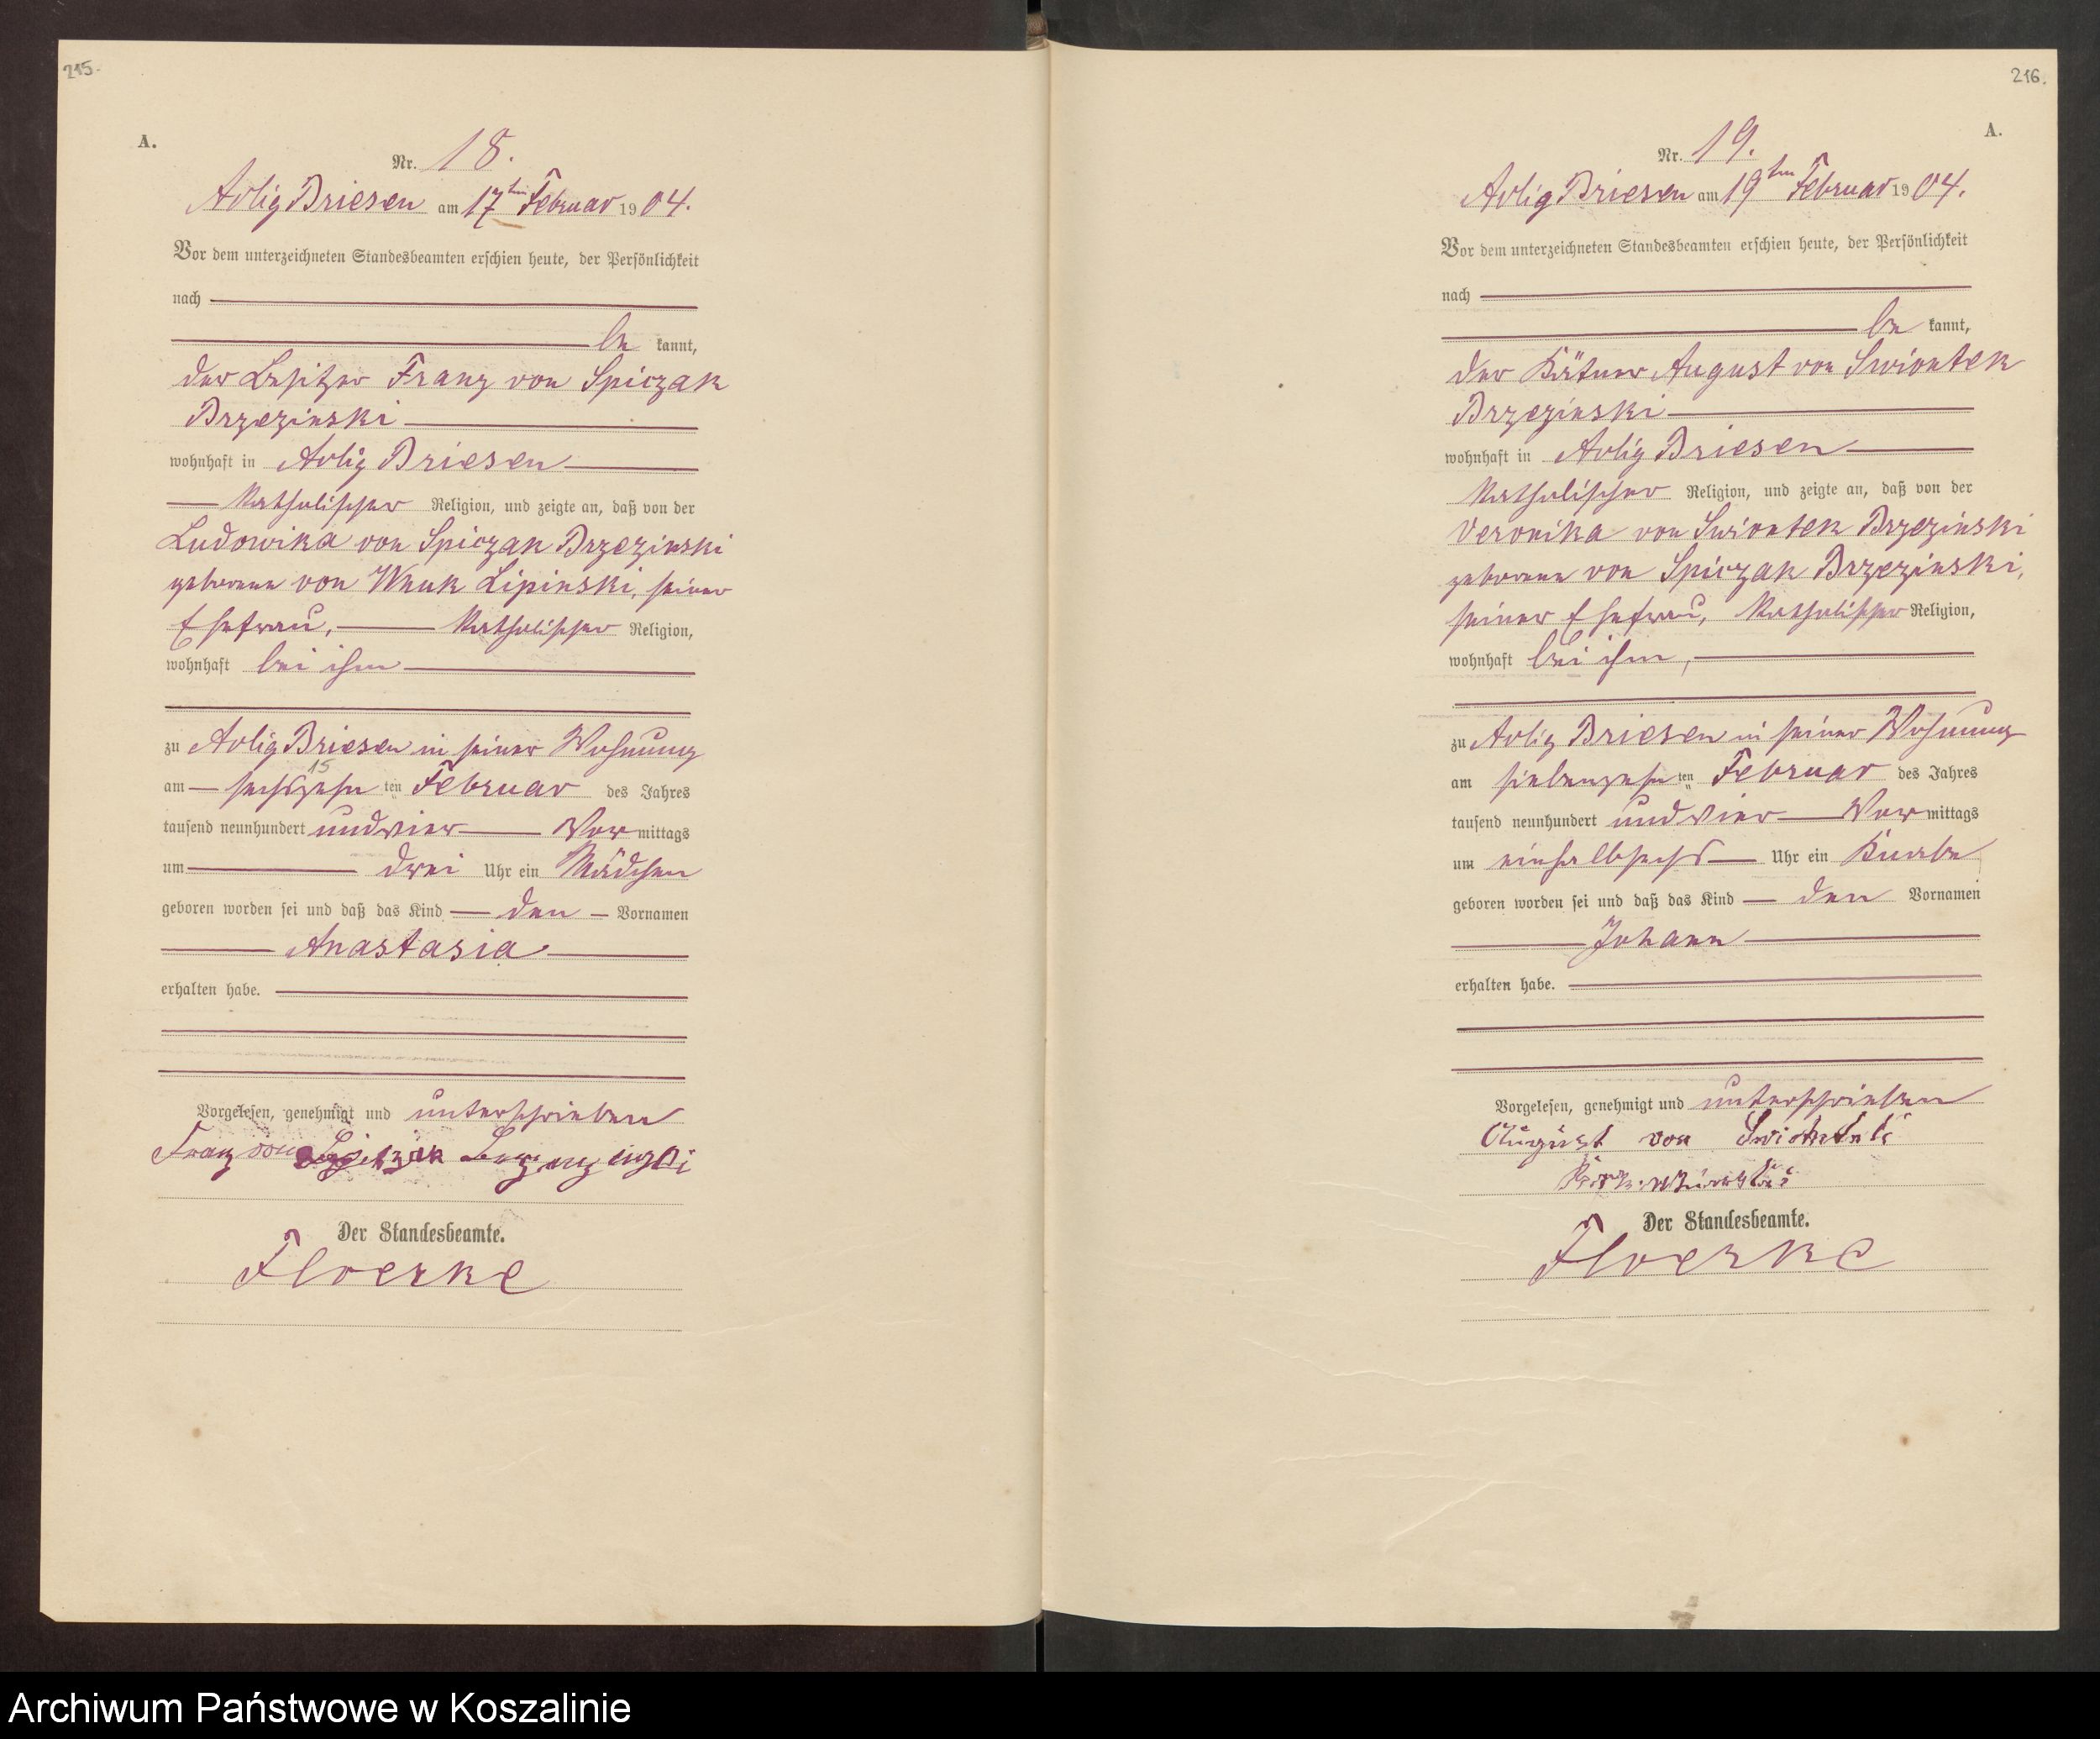 215.
A.
Nr. 18.
Adlig Briesen am 17ten Februar 1904.
Vor dem unterzeichneten Standesbeamten erschien heute, der Persönlichkeit
nach
be kannt,
der Besitzer Franz von Spiczak
Brzezinski
wohnhaft in Adlig Briesen
katholischer Religion, und zeigte an, daß von der
Ludowika von Spiczak Brzezinski
geborene von Wnuk Lipinski, seiner
Ehefrau, katholischer Religion,
wohnhaft bei ihm
zu Adlig Briesen in seiner Wohnung
15
am sechszehn ten Februar des Jahres
tausend neunhundert und vier Vormittags
um drei Uhr ein Mädchen
geboren worden sei und daß das Kind den Vornamen
Anastasia
erhalten habe.
Vorgelesen, genehmigt und unterschrieben
Franz von
Der Standesbeamte.
Floerke
216.
A.
Nr. 19.
Adlig Briesen am 19ten Februar 1904.
Vor dem unterzeichneten Standesbeamten erschien heute, der Persönlichkeit
nach
be kannt,
der Kätner August von Swiontek
Brzezinski
wohnhaft in Adlig Briesen
katholischer Religion, und zeigte an, daß von der
Veronika von Swiontek Brzezinski
geborene von Spiczak Brzezinski,
seiner Ehefrau, katholischer Religion,
wohnhaft bei ihm,
zu Adlig Briesen in seiner Wohnung
am siebenzehn ten Februar des Jahres
tausend neunhundert und vier Vormittags
um einhalbsechs Uhr ein Knabe
geboren worden sei und daß das Kind den Vornamen
Johann
erhalten habe.
Vorgelesen, genehmigt und unterschrieben
August von
Der Standesbeamte.
Floerke
Archiwum Państwowe w Koszalinie